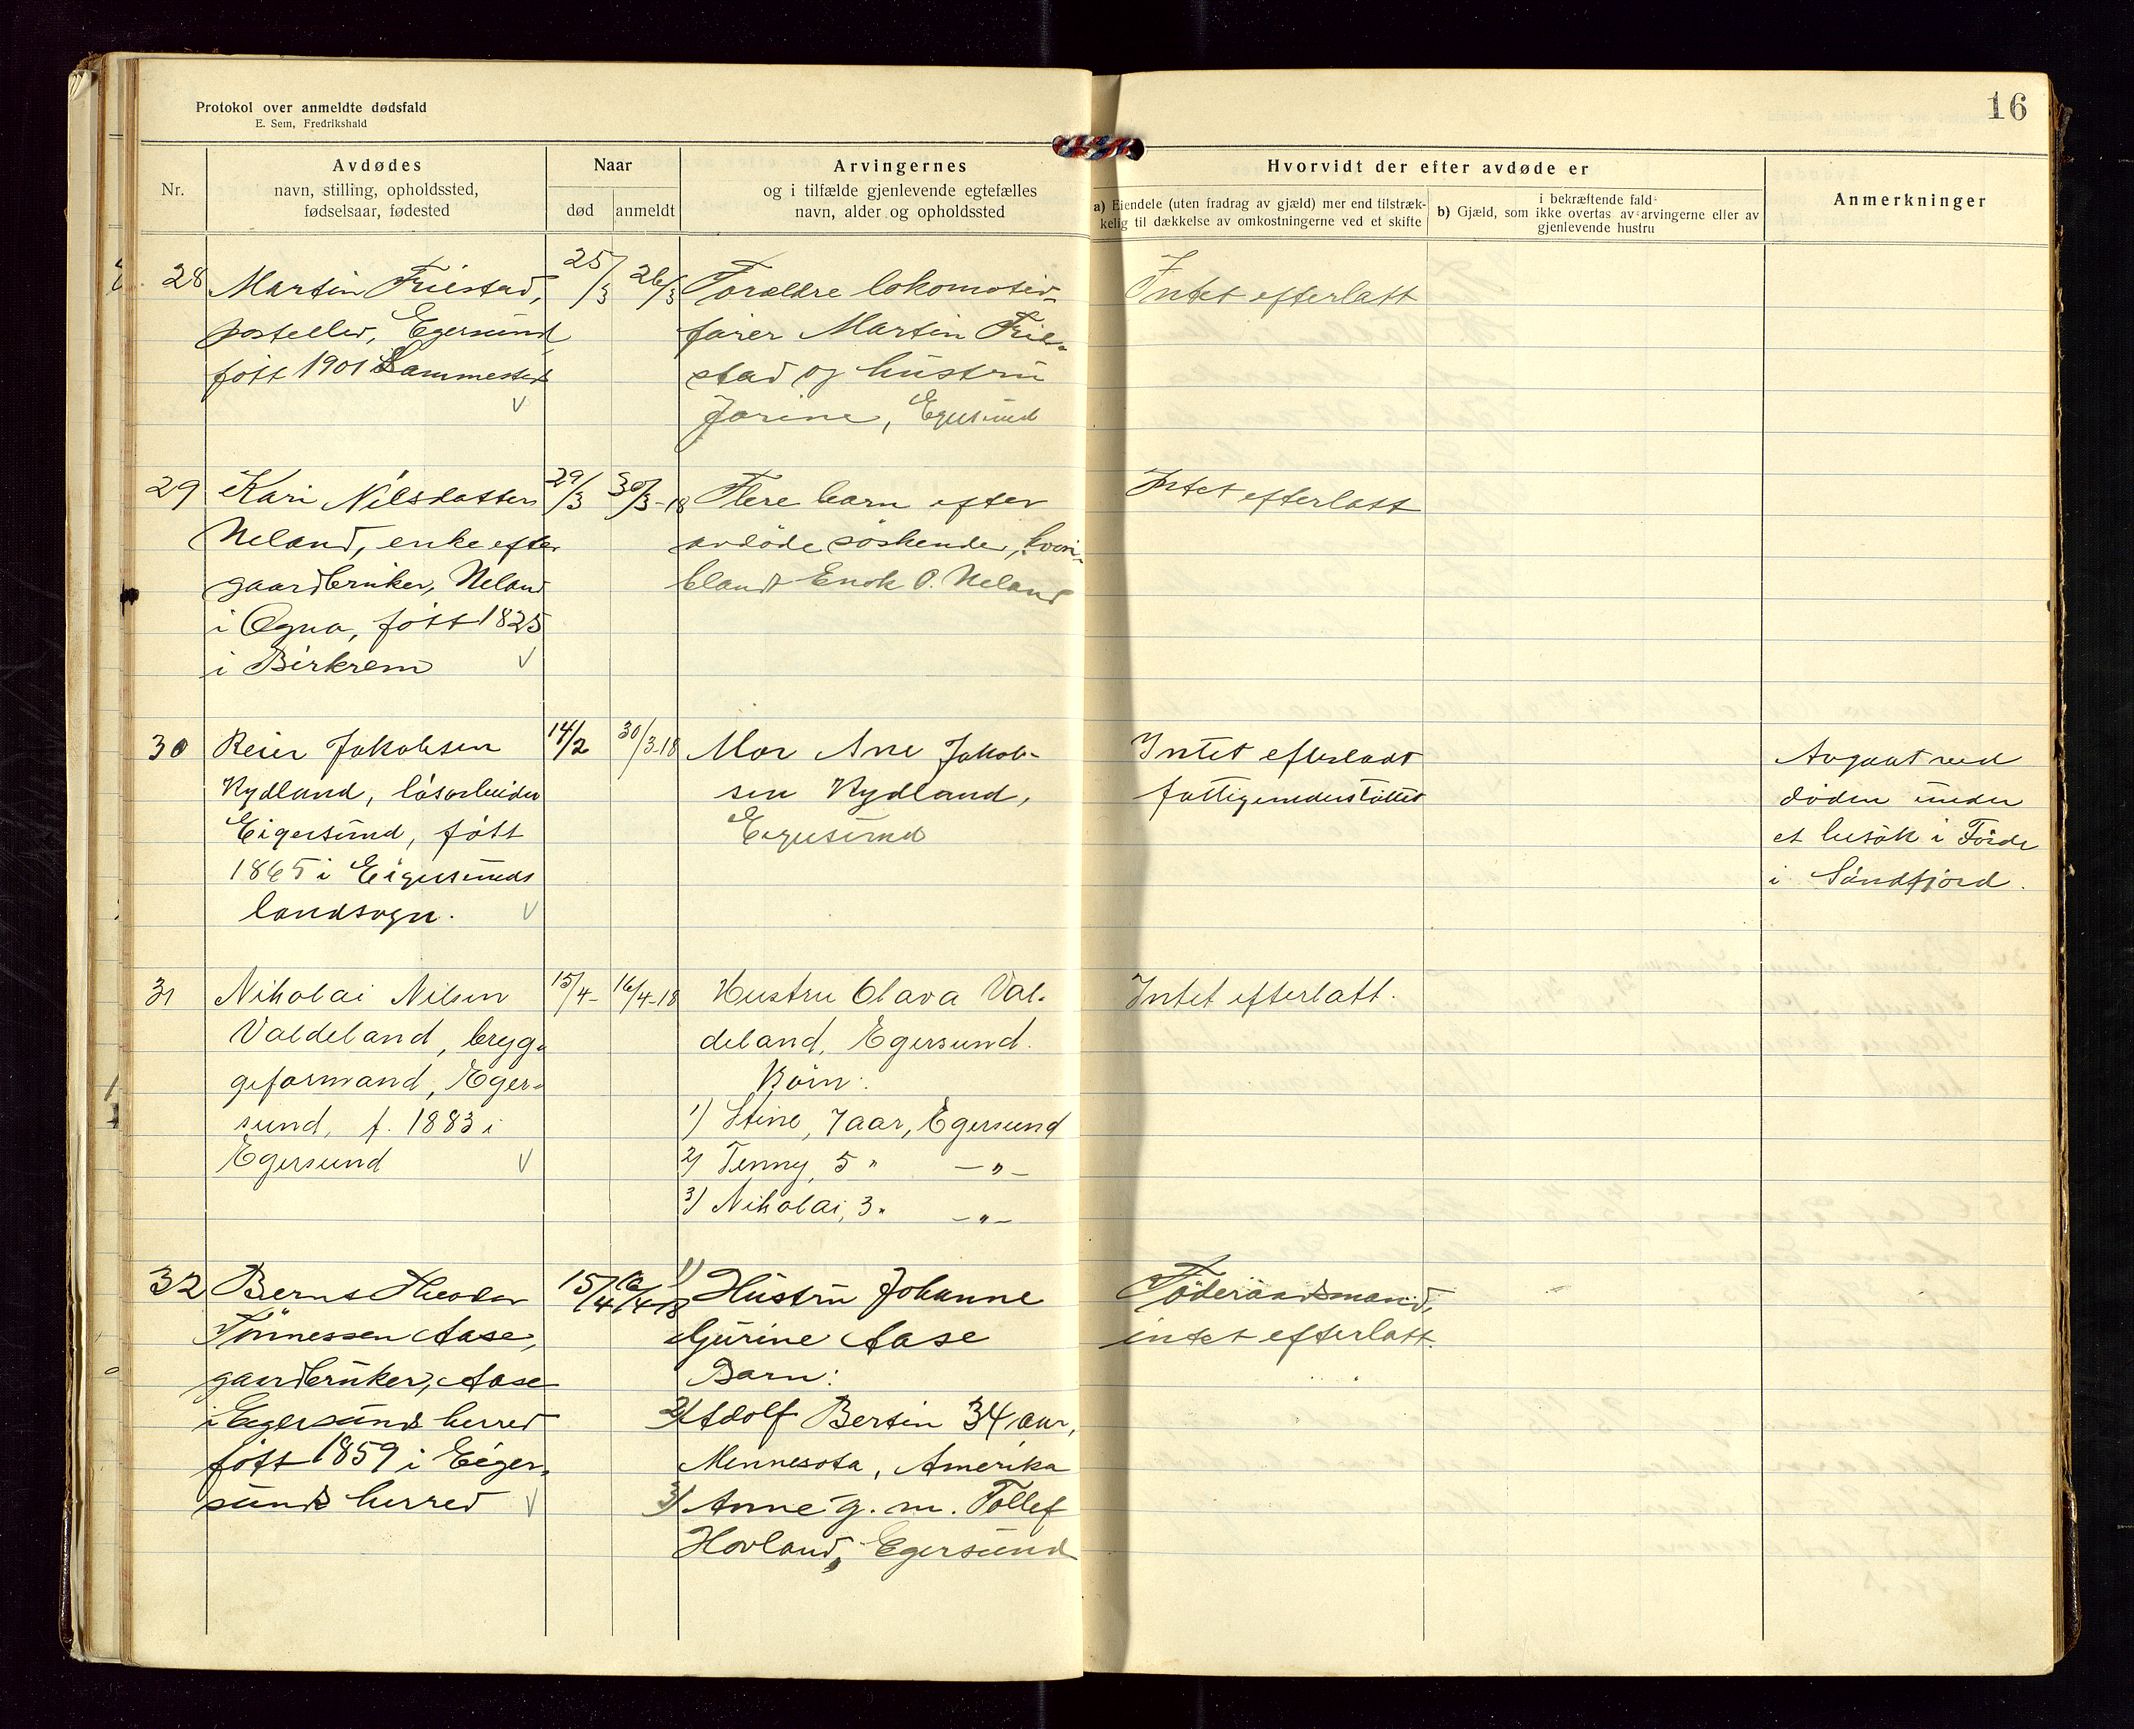 Protokol over anmeldte dødsfald
E. Sem, Fredrikshald
16
Nr.
Avdødes
navn, stilling, opholdssted,
fødselsaar, fødested
Naar
død
anmeldt
Arvingernes
og i tilfælde gjenlevende egtefælles
navn, alder og opholdssted
Hvorvidt der efter avdøde er
a) Eiendele (uten fradrag av gjæld) mer end tilstræk-
kelig til dækkelse av omkostningerne ved et skifte
i bekræftende fald
b) Gjæld, som ikke overtas av arvingerne eller av
gjenlevende hustru
Anmerkninger
28 Martin Friestad, 25/3 26/3 Forældre lokomotiv- Intet efterlatt
postelev, Egersund fører Martin Frie-
født 1901 Sammesteds stad og hustru
V Jorine, Egersund
29 Kari Nilsdatter 29/3 30/3-18 Flere barn efter Intet efterlatt
Neland, enke efter avdøde søskende, hvori-
gaardbruker, Neland blandt Enok O. Neland
i Ogna, født 1825
i Birkrem V
30 Reier Jakobsen 14/2 30/3-18 Mor Ane Jakob- Intet efterladt Avgaat ved
Nydland, løsarbeider sen Nydland, fattigunderstøttet døden under
Eigersund, født Egersund et besøk i Førde
1865 i Eigersunds i Søndfjord.
landsogn. V
31 Nikolai Nilsen 15/4- 16/4-18 Hustru Olava Val- Intet efterlatt.
Valdeland, bryg- deland, Egersund.
geformand, Eger- Børn:
sund, f. 1883 i 1) Stine, 7 aar, Egersund
Egersund V 2) Tenny, 5 " —"—
3) Nikolai, 3 " —"—
32 Bernt Theodor 15/4 16/4-18 1) Hustru Johanne Föderaadsmand,
Tönnessen Aase, Gurine Aase intet efterlatt.
gaardbruker, Aase Barn:
i Eigersunds herred 2) Adolf Bertin 34 aar,
født 1859 i Eiger- Minnesota, Amerika
sunds herred V 3) Anne g. m. Tollef
Hovland, Egersund